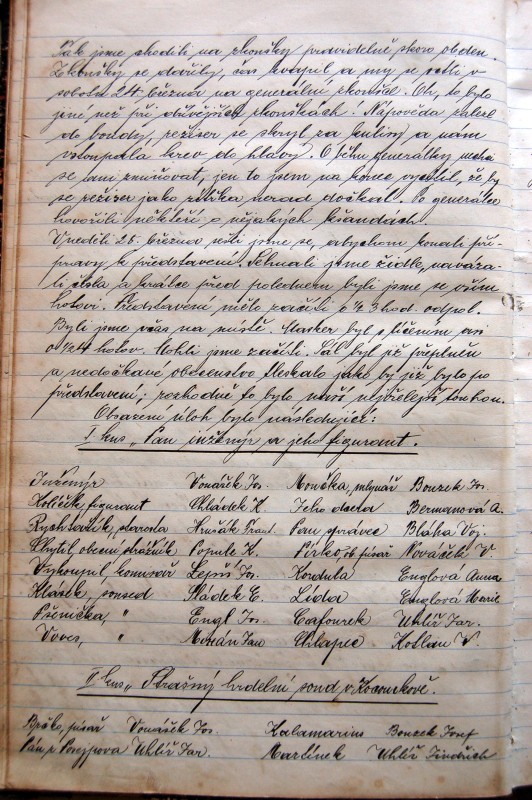 Tak jsme chodili na zkoušky pravidelně skoro obden.
Zkoušky se dařily, čas kvapil a my se sešli v
sobotu 24. března na generální zkoušce. Oh, to bylo
jiné než při dřívějších zkouškách! Nápověda zalezl
do boudy, režiser se skryl za kulisy a nám
vstoupala krev do hlavy. O běhu generálky nechci
se ani zmiňovat, jen to jsem na konec vycítil, že by
se režiser jako zítřka nerad dočkal. Po generálce
hovořili někteří o nějakých kšandách.
V neděli 25. března sešli jsme se, abychom konali pří-
pravy k představení. Sehnali jsme židle, naváza-
li čísla a krátce před polednem byli jsme se vším
hotovi. Představení mělo začíti o ½ 3 hod. odpol.
Byli jsme včas na místě. Masker byl s líčením asi
o ¼ 4 hotov. Mohli jsme začíti. Sál byl již přeplněn
a nedočkavé obecenstvo tleskalo jako by již bylo po
představení; rozhodně to bylo naší nejvřelejší touhou.
Obsazení úloh bylo následující:
I. kus „Pan inženýr a jeho figurant“.
Inženýr Vonášek Jos. Moučka, mlynář Bouzek Jos.
Holéček, figurant Chládek K. Jeho dcera Bermanová A.
Rychtařík, starosta Hrušák Frant. Pan správce Bláha Voj.
Chytil, obecní strážník Popule K. Pírko, ob. písař Nováček V.
Vyskoupil, komisař Lejsis Jos. Kordula Englová Anna
Klásek, soused Sládek C. Lída Englová Marie
Pšenička, " Engl Jos. Cafourek Uhlíř Jar.
Voves, " Morán Jan Chlapec Kotlan V.
II. kus „Strašný hrdelní soud v Kocourkově.
Brčko, písař Vonášek Jos. Kalamarius Bouzek Josef
Uhlíř Jar. Martínek Uhlíř Jindřich